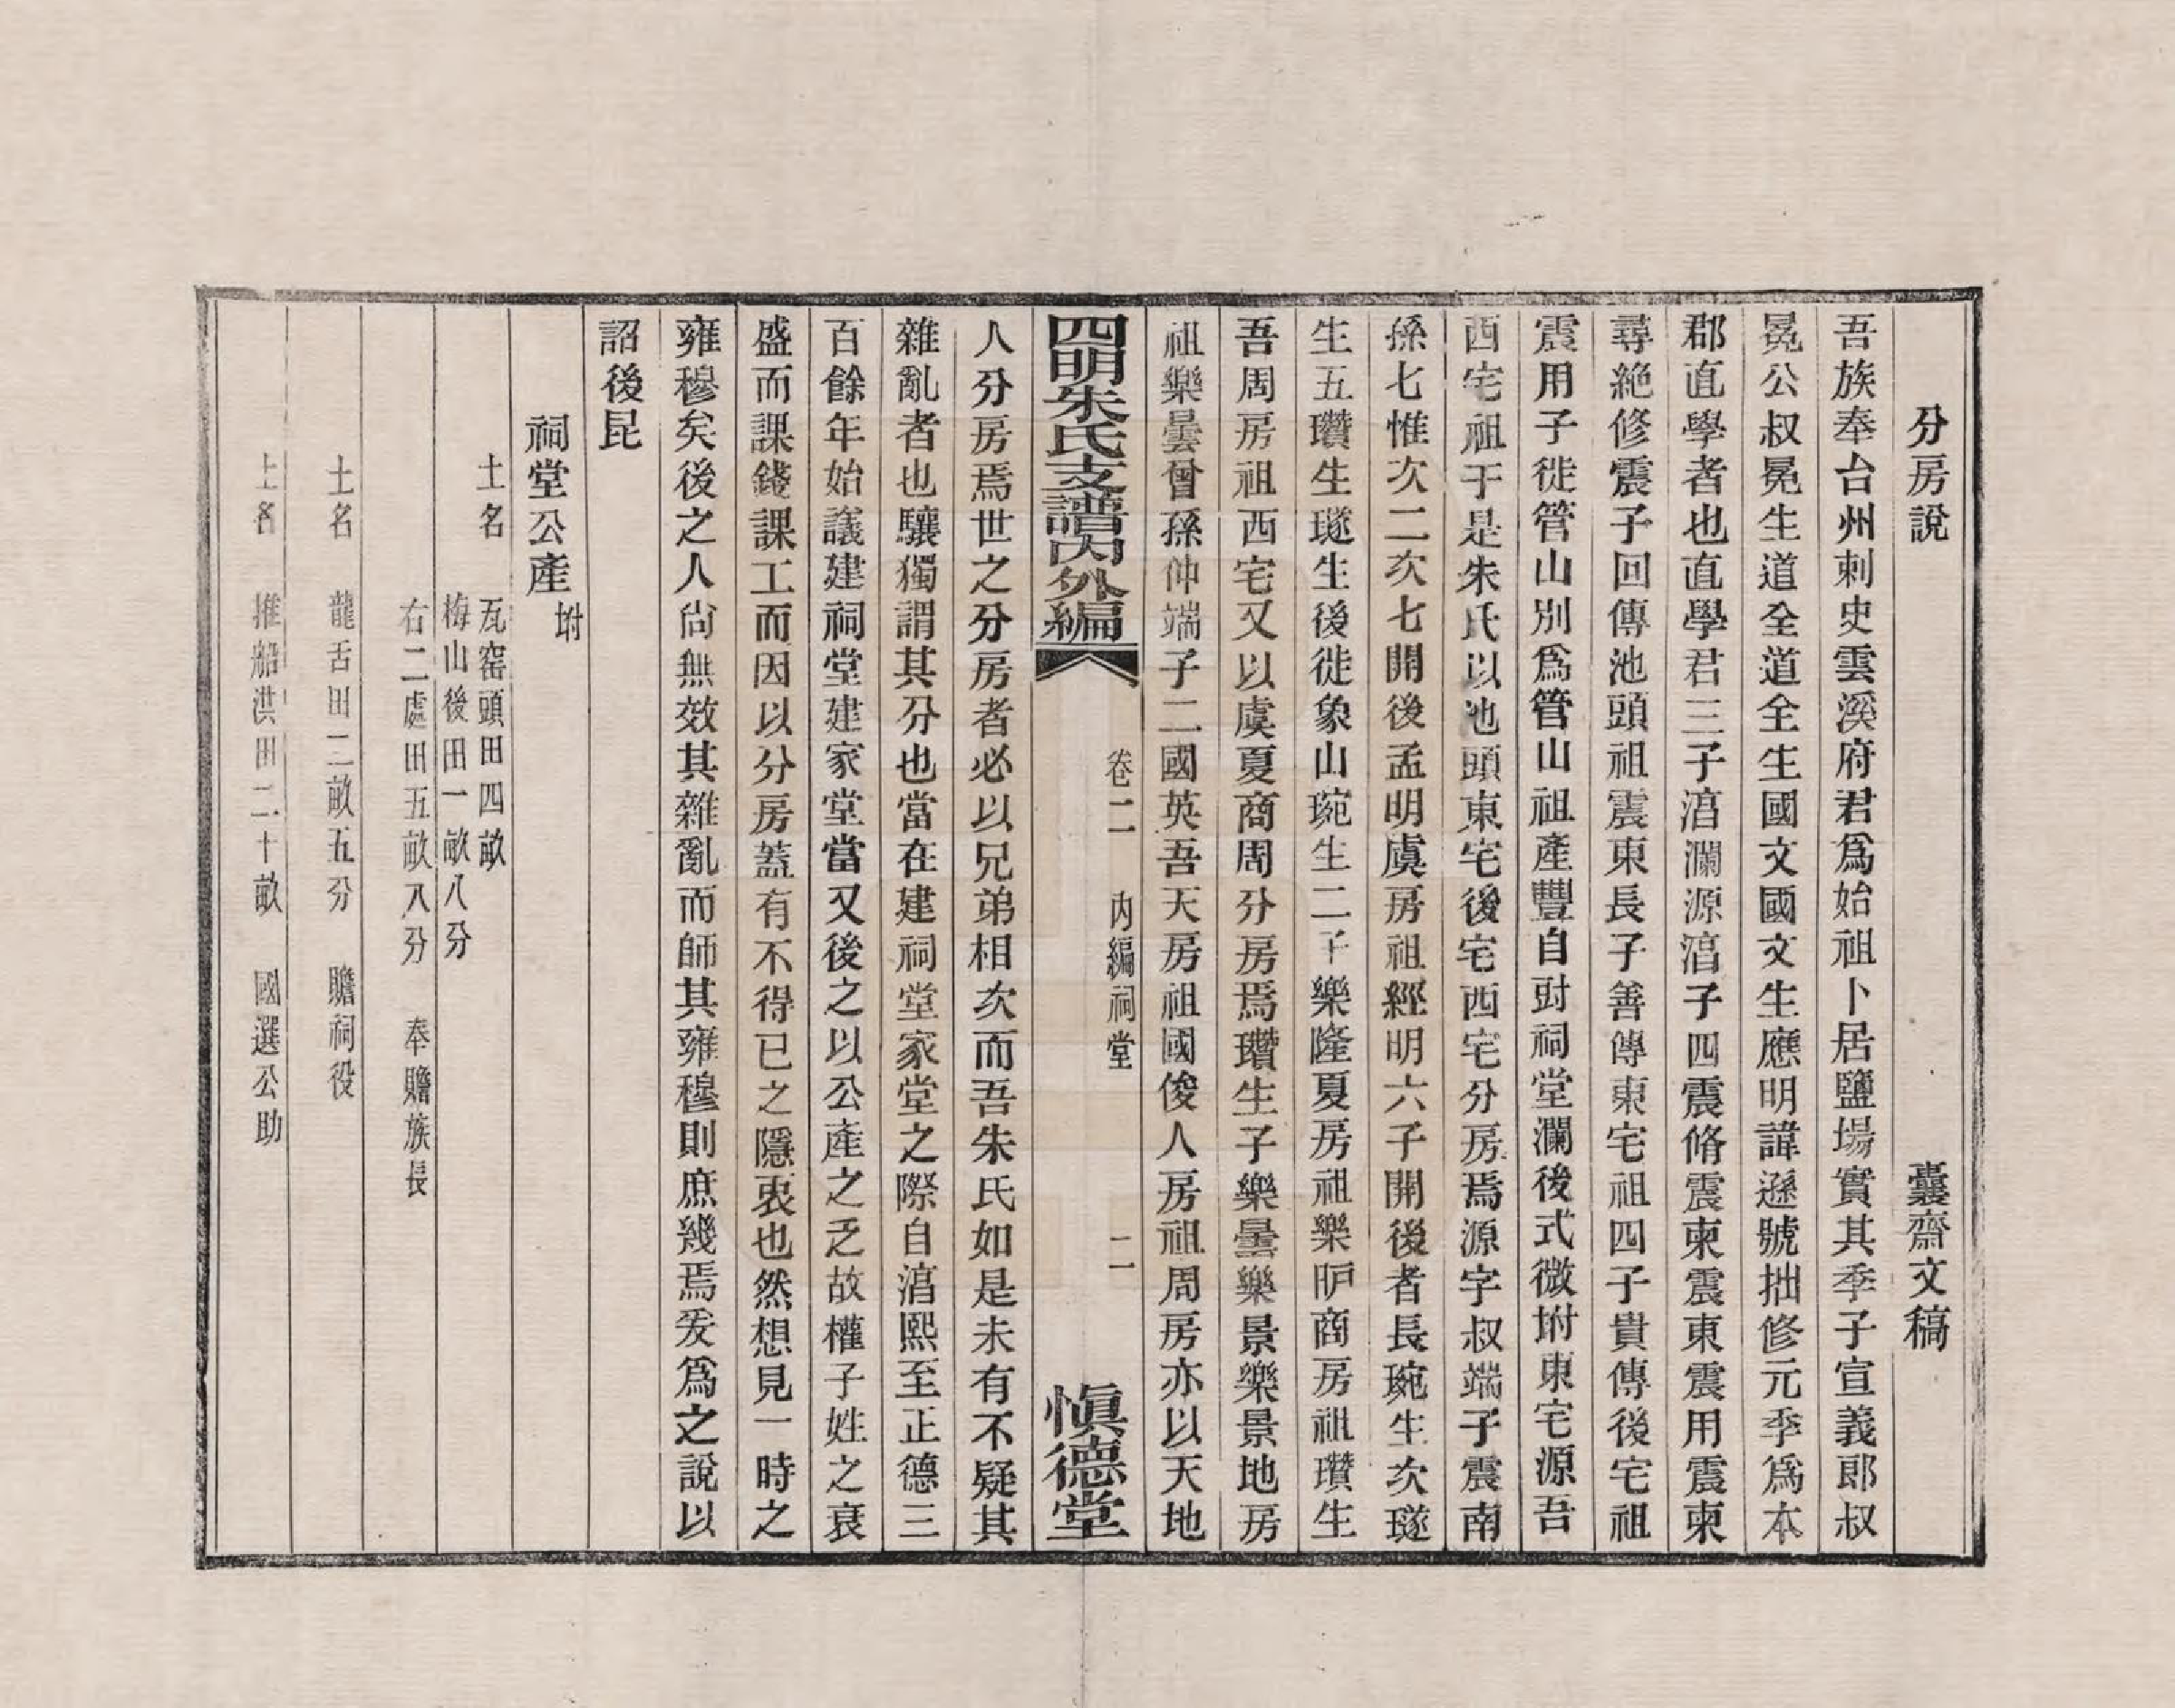 分房說　囊齋文稿
吾族奉台州刺史雲溪府君爲始祖卜居鹽場實其季子宣義郎叔
冕公叔冕生道全道全生國文國文生應明諱遜號拙修元季爲本
郡直學者也直學君三子湻瀾源湻子四震脩震柬震東震用震柬
尋絶修震子回傳池頭祖震東長子善傳東宅祖四子貴傳後宅祖
震用子徙管山別爲管山祖產豐自尌祠堂瀾後式微坿東宅源吾
西宅祖于是朱氏以池頭東宅後宅西宅分房焉源字叔端子震南
孫七惟次二次七開後孟明虞房祖經明六子開後者長琬生次璲
生五瓚生璲生後徙象山琬生二子樂隆夏房祖樂昈商房祖瓚生
吾周房祖西宅又以虞夏商周分房焉瓚生子樂曇樂景樂景地房
祖樂曇曾孫仲端子二國英吾天房祖國俊人房祖周房亦以天地
四明朱氏支譜內外編　卷二　內編祠堂　二　愼德堂
人分房焉世之分房者必以兄弟相次而吾朱氏如是未有不疑其
雜亂者也驤獨謂其分也當在建祠堂家堂之際自湻熙至正德三
百餘年始議建祠堂建家堂當又後之以公產之乏故權子姓之衰
盛而課錢課工而因以分房蓋有不得已之隱衷也然想見一時之
雍穆矣後之人尙無效其雜亂而師其雍穆則庶幾焉爰爲之說以
詔後昆
祠堂公產坿
土名　瓦窑頭田四畝
梅山後田一畝八分
右二處田五畝八分　奉贍族長
土名　龍舌田二畝五分　贍祠役
土名　推船洪田二十畝　國選公助